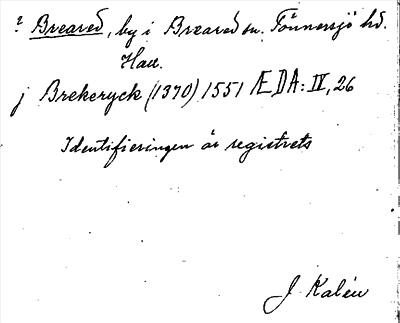 ? Breared, by i Breared sn. Tönnersjö hd.
Hall.
j Brekeryck (1370) 1551 ÆDA: IV, 26
Identifieringen är registrets
J. Kalén